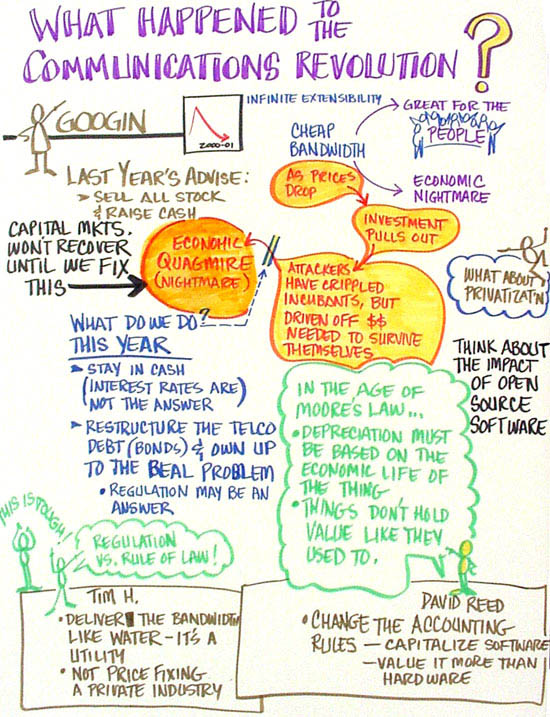 WHAT HAPPENED TO THE
COMMUNICATIONS REVOLUTION?
GOOGIN
2000-01
INFINITE EXTENSIBILITY
CHEAP
BANDWIDTH
GREAT FOR THE
PEOPLE
ECONOMIC
NIGHTMARE
LAST YEAR'S ADVISE:
➤ SELL ALL STOCK
& RAISE CASH
AS PRICES
DROP
INVESTMENT
PULLS OUT
ATTACKERS
HAVE CRIPPLED
INCUBANTS, BUT
DRIVEN OFF $$
NEEDED TO SURVIVE
THEMSELVES
ECONOMIC
QUAGMIRE
(NIGHTMARE)
CAPITAL MKTS.
WON'T RECOVER
UNTIL WE FIX
THIS
WHAT ABOUT
PRIVATIZAT'N
THINK ABOUT
THE IMPACT
OF OPEN
SOURCE
SOFTWARE
WHAT DO WE DO?
THIS YEAR
➤ STAY IN CASH
(INTEREST RATES ARE)
NOT THE ANSWER
➤ RESTRUCTURE THE TELCO
DEBT (BONDS) & OWN UP
TO THE REAL PROBLEM
• REGULATION MAY BE AN
ANSWER
IN THE AGE OF
MOORE'S LAW...
• DEPRECIATION MUST
BE BASED ON THE
ECONOMIC LIFE OF
THE THING
• THINGS DON'T HOLD
VALUE LIKE THEY
USED TO.
THIS IS TOUGH!
REGULATION
VS. RULE OF LAW!
TIM H.
• DELIVER THE BANDWIDTH
LIKE WATER - IT'S A
UTILITY
• NOT PRICE FIXING
A PRIVATE INDUSTRY
DAVID REED
• CHANGE THE ACCOUNTING
RULES — CAPITALIZE SOFTWARE
— VALUE IT MORE THAN
HARDWARE